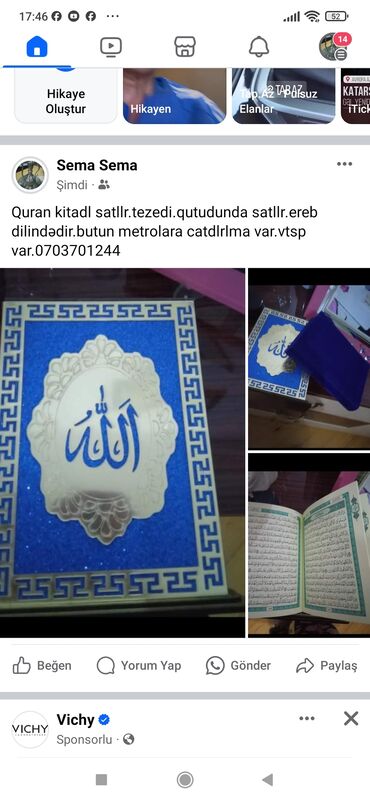 17:46
52
14
Hikaye
Oluştur
Hikayen
TAP.AZ
Tap.Az - Pulsuz
Elanlar
KATARS
iTick
Sema Sema
Şimdi
Quran kitadl satllr.tezedi.qutudunda satllr.ereb
dilindədir.butun metrolara catdlrlma var.vtsp
var.0703701244
الله
Beğen
Yorum Yap
Gönder
Paylaş
VICHY
Vichy
Sponsorlu